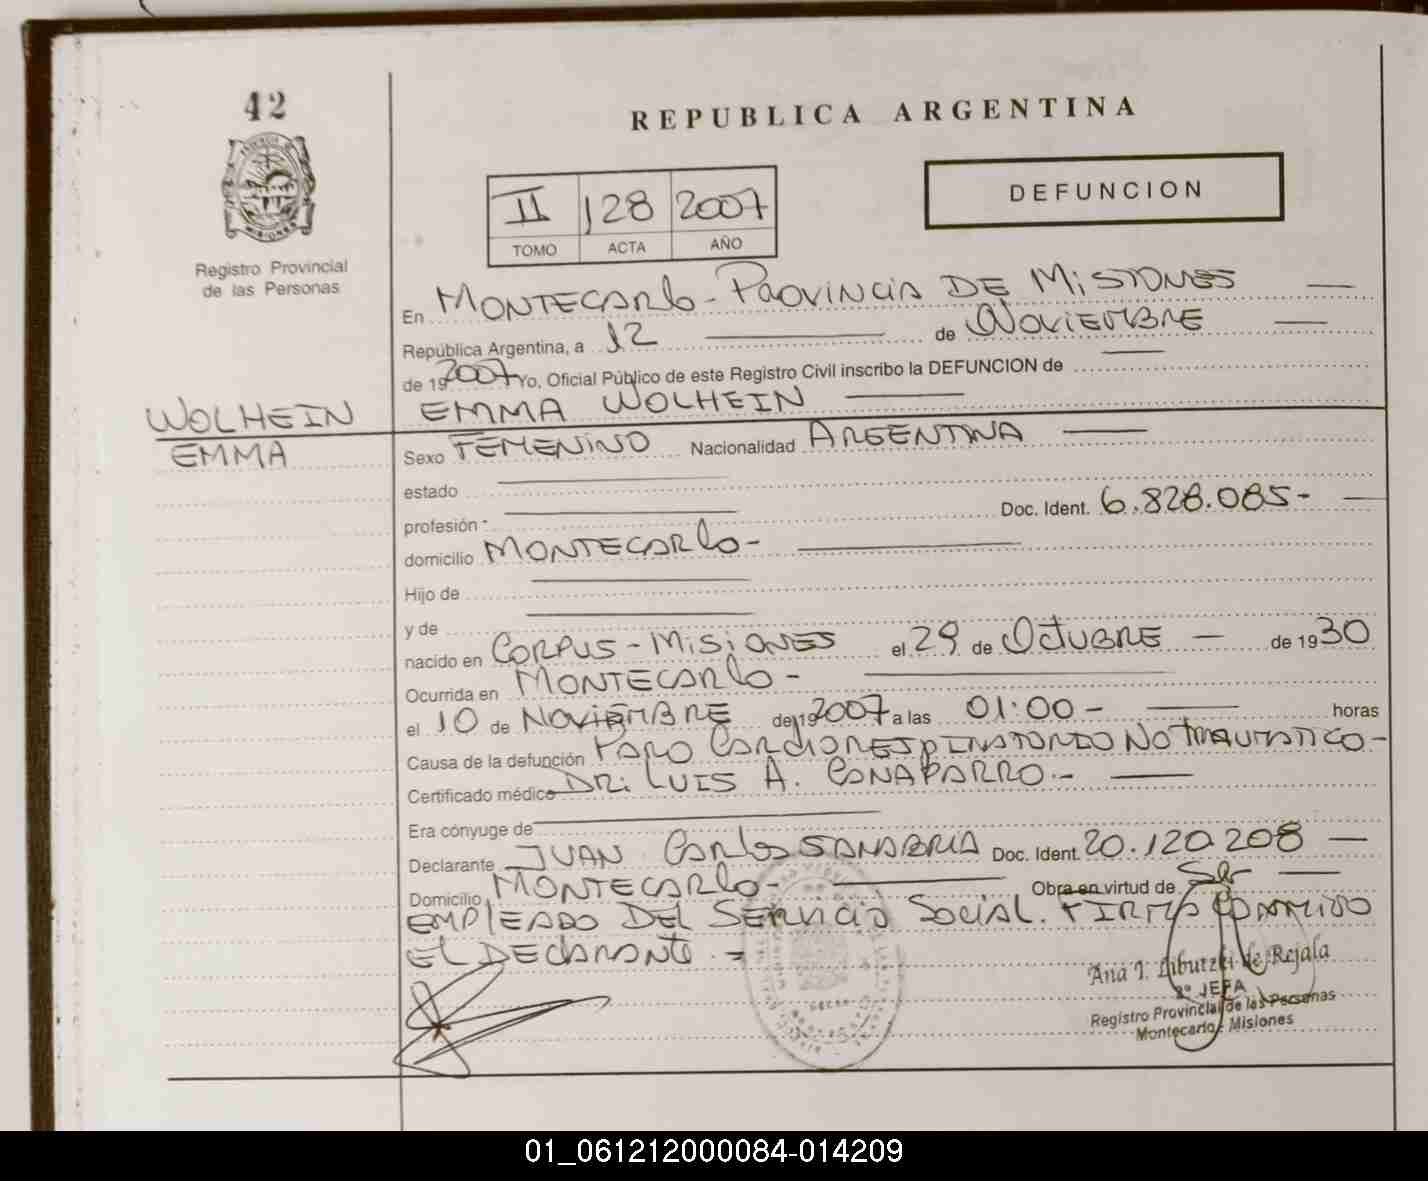 42
REPUBLICA ARGENTINA
II 128 2007
TOMO ACTA AÑO
DEFUNCION
Registro Provincial
de las Personas
En MONTECARLO - PROVINCIA DE MISIONES
República Argentina, a 12 de NOVIEMBRE
de 19 2007 Yo, Oficial Público de este Registro Civil inscribo la DEFUNCION de
WOLHEIN EMMA WOLHEIN
EMMA Sexo FEMENINO Nacionalidad ARGENTINA
estado
profesión Doc. Ident. 6.828.085-
domicilio MONTECARLO-
Hijo de
y de
nacido en CORPUS - MISIONES el 29 de OCTUBRE de 19 30
Ocurrida en MONTECARLO-
el 10 de NOVIEMBRE de 19 2007 a las 01:00- horas
Causa de la defunción PARO CARDIORESPIRATORIO NO TRAUMATICO-
Certificado médico DR. LUIS A. CANAPARRO.-
Era cónyuge de
Declarante JUAN CARLOS SANABRIA Doc. Ident. 20.120.208
Domicilio MONTECARLO- Obra en virtud de SER
EMPLEADO DEL SERVICIO SOCIAL. FIRMA CONMIGO
EL DECLARANTE.-
Ana I. de Rejala
2º JEFA
Registro Provincial de las Personas
Montecarlo - Misiones
01_061212000084-014209